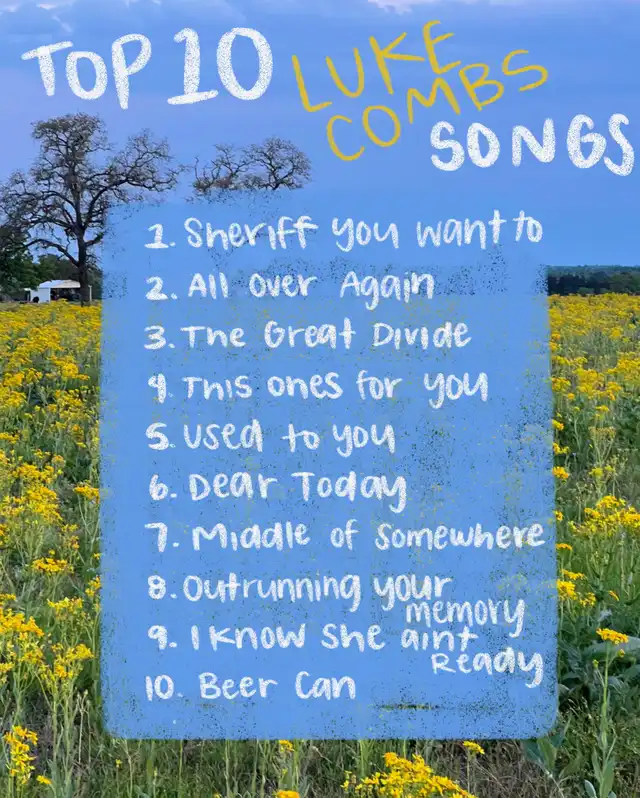 TOP 10 LUKE COMBS SONGS
1. Sheriff you want to
2. All over Again
3. The Great Divide
4. This ones for you
5. used to you
6. Dear Today
7. Middle of somewhere
8. Outrunning your memory
9. I know she aint Ready
10. Beer Can